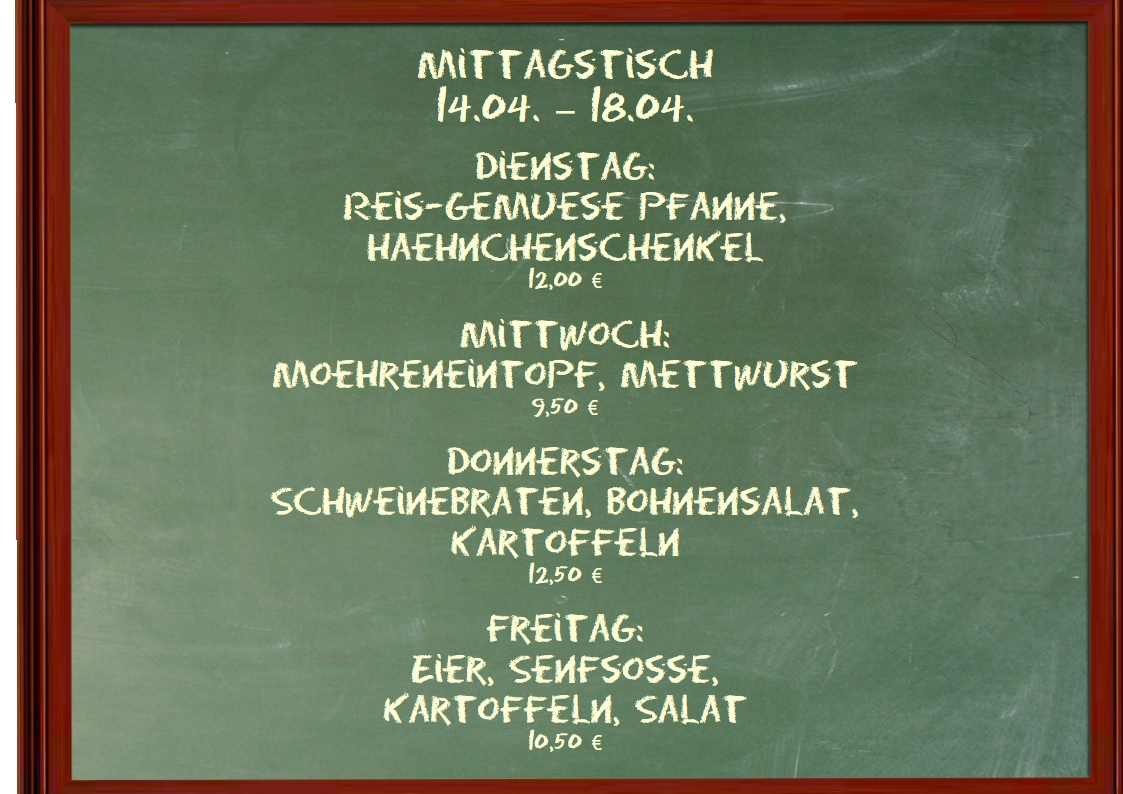 MITTAGSTISCH
14.04. – 18.04.
DIENSTAG:
REIS-GEMUESE PFANNE,
HAEHNCHENSCHENKEL
12,00 €
MITTWOCH:
MOEHRENEINTOPF, METTWURST
9,50 €
DONNERSTAG:
SCHWEINEBRATEN, BOHNENSALAT,
KARTOFFELN
12,50 €
FREITAG:
EIER, SENFSOSSE,
KARTOFFELN, SALAT
10,50 €